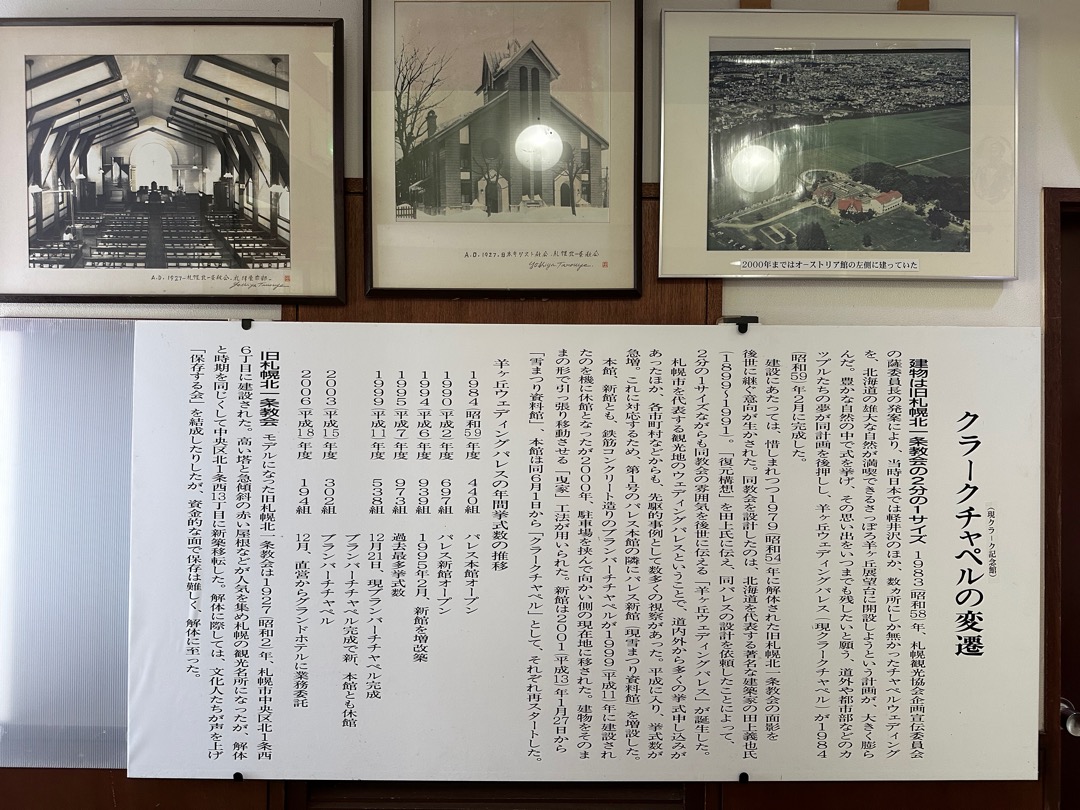 A.D.1927.札幌北一条教会.礼拝堂
Yoshiya Tanouye.
A.D.1927.日本キリスト教会.札幌北一条教会
Yoshiya Tanouye.
2000年まではオーストリア館の左側に建っていた
クラークチャペルの変遷
(現クラーク記念館)
建物は旧札幌北一条教会の2分の1サイズ 1983(昭和58)年、札幌観光協会企画宣伝委員会
の薩委員長の発案により、当時日本では軽井沢のほか、数ヵ所にしか無かったチャペルウェディング
を、北海道の雄大な自然が満喫できるさっぽろ羊ヶ丘展望台に開設しようという計画が、大きく膨ら
んだ。豊かな自然の中で式を挙げ、その思い出をいつまでも残したいと願う、道外や都市部などのカ
ップルたちの夢が同計画を後押しし、羊ヶ丘ウェディングパレス(現クラークチャペル)が1984
(昭和59)年2月に完成した。
建設にあたっては、惜しまれつつ1979(昭和54)年に解体された旧札幌北一条教会の面影を
後世に継ぐ意向が生かされた。同教会を設計したのは、北海道を代表する著名な建築家の田上義也氏
(1899〜1991)。「復元構想」を田上氏に伝え、同パレスの設計を依頼したことによって、
2分の1サイズながらも同教会の雰囲気を後世に伝える「羊ヶ丘ウェディングパレス」が誕生した。
札幌市を代表する観光地のウェディングパレスということで、道内外から多くの挙式申し込みが
あったほか、各市町村などからも、先駆的事例として数多くの視察があった。平成に入り、挙式数が
急増。これに対応するため、第1号のパレス本館の隣にパレス新館(現雪まつり資料館)を増設した。
本館、新館とも、鉄筋コンクリート造りのブランバーチチャペルが1999(平成11)年に建設され
たのを機に休館となったが2000年、駐車場を挟んで向かい側の現在地に移された。建物をそのま
まの形で引っ張り移動させる「曳家」工法が用いられた。新館は2001(平成13)年1月27日から
「雪まつり資料館」、本館は同6月1日から「クラークチャペル」として、それぞれ再スタートした。
羊ヶ丘ウェディングパレスの年間挙式数の推移
1984(昭和59)年度 440組 パレス本館オープン
1990(平成2)年度 697組 パレス新館オープン
1994(平成6)年度 939組 1995年2月、新館を増改築
1995(平成7)年度 973組 過去最多挙式数
1999(平成11)年度 538組 12月21日、現ブランバーチチャペル完成
ブランバーチチャペル完成で新、本館とも休館
2003(平成15)年度 302組 ブランバーチチャペル
2006(平成18)年度 194組 12月、直営からグランドホテルに業務委託
旧札幌北一条教会 モデルになった旧札幌北一条教会は1927(昭和2)年、札幌市中央区北1条西
6丁目に建設された。高い塔と急傾斜の赤い屋根などが人気を集め札幌の観光名所になったが、解体
と時期を同じくして中央区北1条西13丁目に新築移転した。解体に際しては、文化人たちが声を上げ
「保存する会」を結成したりしたが、資金的な面で保存は難しく、解体に至った。